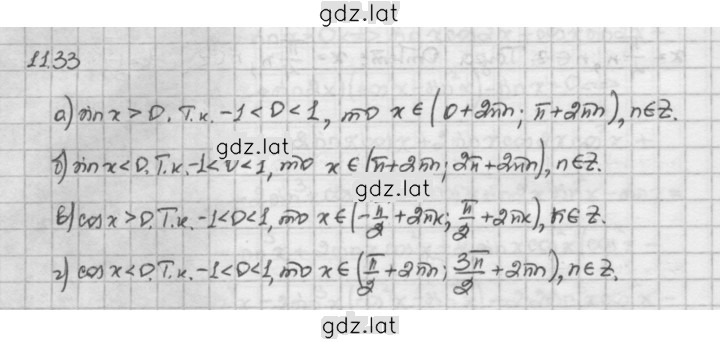 gdz.lat
11.33
а) sin x > 0. Т.к. -1 < 0 < 1, то x ∈ (0 + 2πn; π + 2πn), n ∈ Z.
gdz.lat
б) sin x < 0. Т.к. -1 < 0 < 1, то x ∈ (π + 2πn; 2π + 2πn), n ∈ Z.
gdz.lat
в) cos x > 0. Т.к. -1 < 0 < 1, то x ∈ (-π/2 + 2πk; π/2 + 2πk), k ∈ Z.
г) cos x < 0. Т.к. -1 < 0 < 1, то x ∈ (π/2 + 2πn; 3π/2 + 2πn), n ∈ Z.
gdz.lat